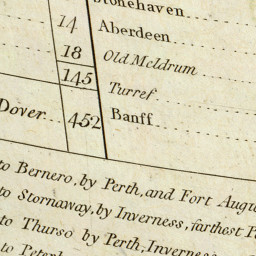 Stonehaven
14 Aberdeen
18 Old Meldrum
145
Turref
Dover 452 Banff
to Bernero, by Perth, and Fort Augu
to Stornaway, by Inverness, farthest P
to Thurso by Perth, Inverness
to Peterh